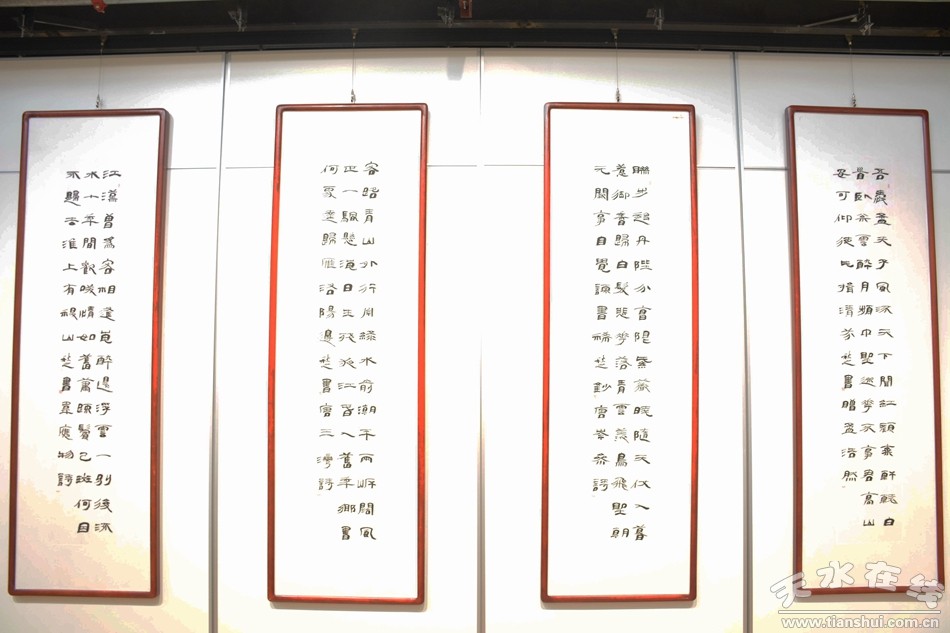 吾愛孟夫子風流天下聞紅顏棄軒冕白
首臥松雲醉月頻中聖迷花不事君高山
安可仰徒此揖清芬楚書贈孟浩然
聯步趨丹陛分曹限紫薇曉隨天仗入暮
惹御香歸白髮悲花落青雲羨鳥飛聖朝
无闕事自覺諫書稀楚鈔唐岑參詩
客路青山外行舟綠水前潮平兩岸闊風
正一帆懸海日生殘夜江春入舊年鄉書
何處達歸雁洛陽邊楚書唐王灣詩
江漢曾為客相逢每醉還浮雲一別後流
水十年間歡笑情如舊蕭疏鬢已斑何因
不歸去淮上有秋山楚書韋應物詩
天水在线
www.tianshui.com.cn